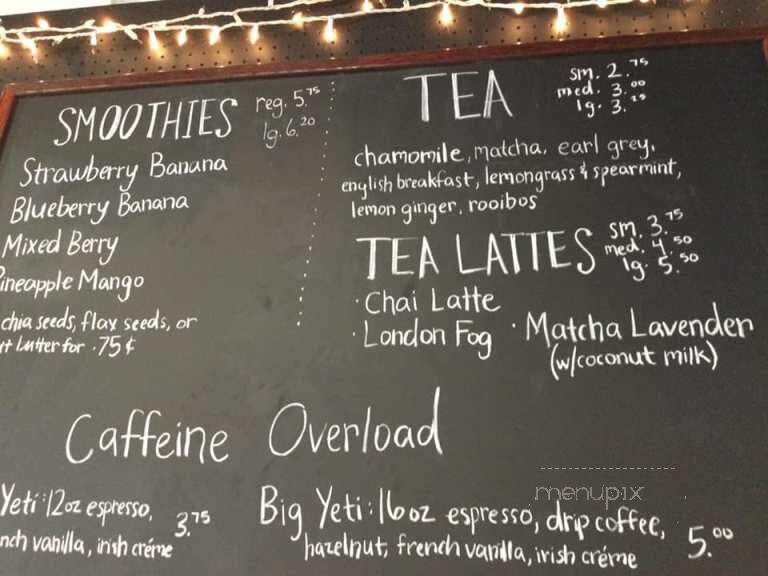 SMOOTHIES reg. 5.75
lg. 6.20
Strawberry Banana
Blueberry Banana
Mixed Berry
ineapple Mango
chia seeds, flax seeds, or
butter for .75¢
TEA sm. 2.75
med. 3.00
lg. 3.25
chamomile, matcha, earl grey,
english breakfast, lemongrass & spearmint,
lemon ginger, rooibos
TEA LATTES sm. 3.75
med. 4.50
lg. 5.50
· Chai Latte
· London Fog · Matcha Lavender
(w/coconut milk)
Caffeine Overload
Yeti: 12oz espresso,
nch vanilla, irish créme 3.75
Big Yeti: 16oz espresso, drip coffee,
hazelnut, french vanilla, irish créme 5.00
menupix